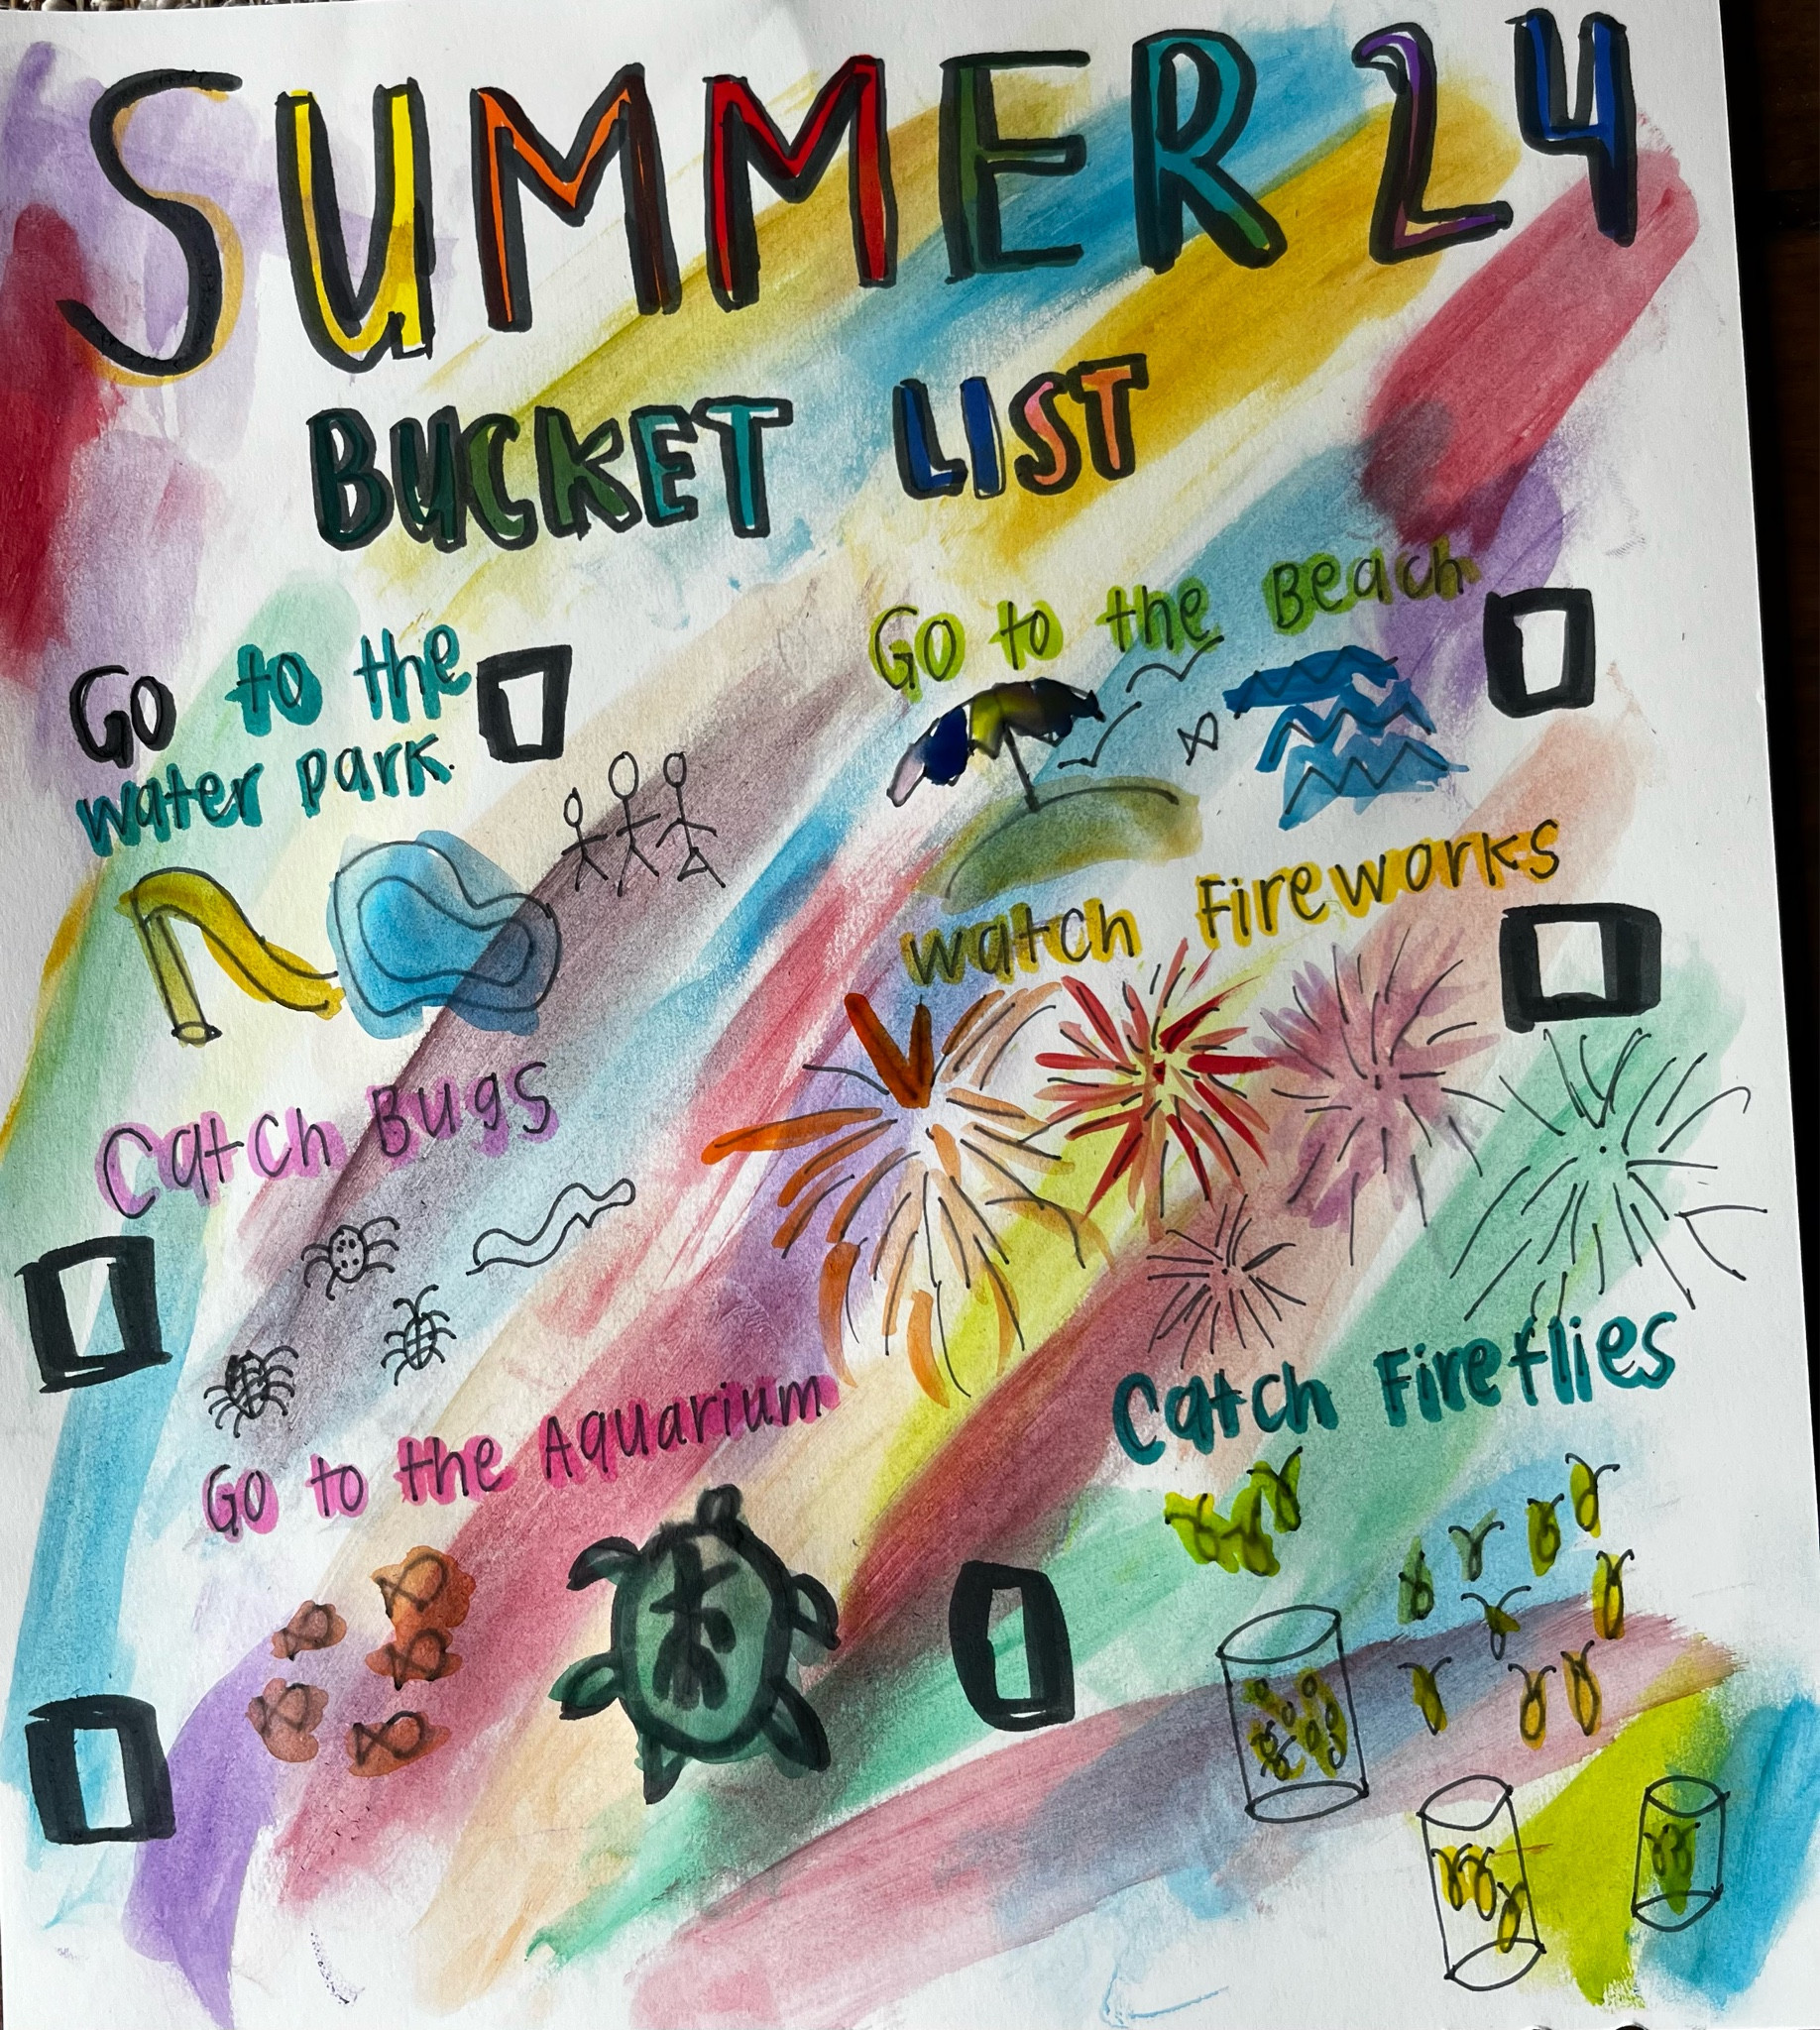 SUMMER 24
BUCKET LIST
Go to the
water park.
Go to the Beach
watch Fireworks
Catch Bugs
Go to the Aquarium
Catch Fireflies